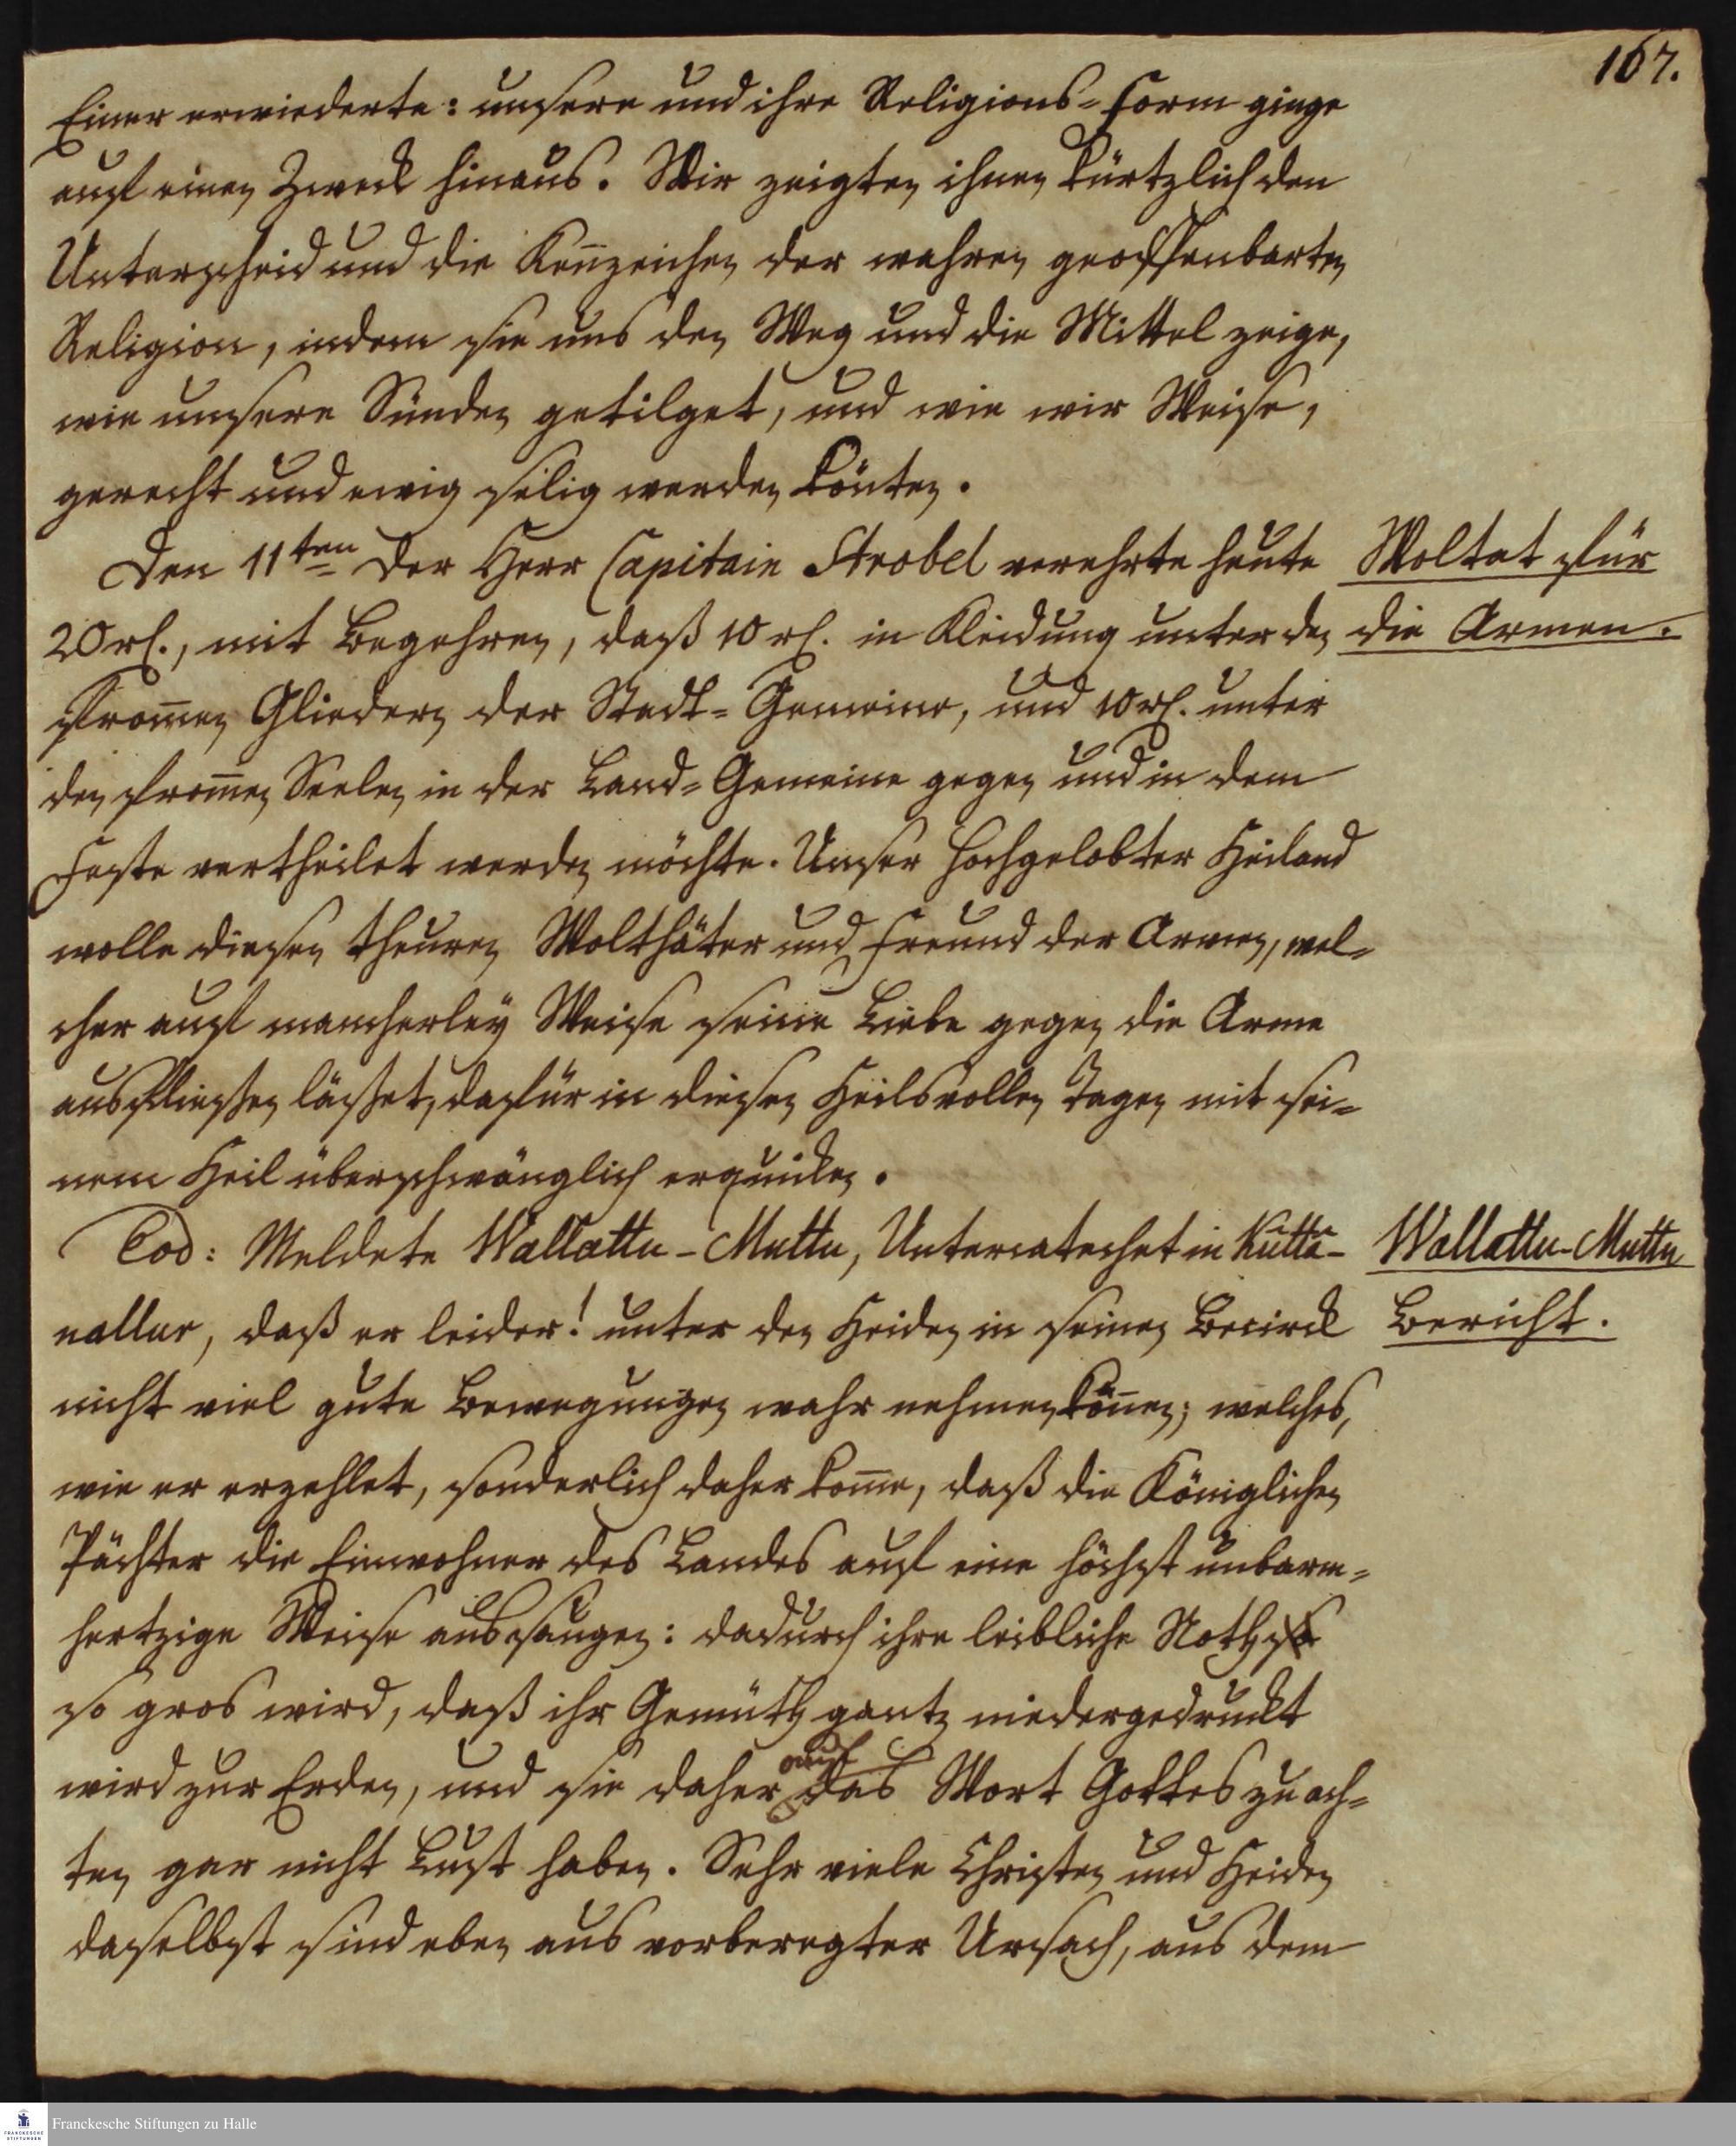 167.
Einer erwiederte: unsere und ihre Religions-Form ginge
auf einen Zweck hinaus. Wir zeigten ihnen kürtzlich den
Unterscheid und die Keñzeichen der wahren geoffenbarten
Religion, indem sie uns den Weg und die Mittel zeige,
wie unsere Sünden getilget, und wie wir Weise,
gerecht und ewig selig werden könten.
Den 11ten Der Herr Capitain Strobel verehrte heute
Woltat für
20 rl., mit Begehren, daß 10 rl. in Kleidung unter den
die Armen.
from̃en Gliedern der Stadt-Gemeine, und 10 rl. unter
den from̃en Seelen in der Land-Gemeine gegen und in dem
Feste vertheilet werden möchte. Unser hochgelobter Heiland
wolle diesen theuren Wolthäter und Freund der Armen, wel-
cher auf mancherley Weise seine Liebe gegen die Arme
ausfliessen lässet, dafür in diesen Heilsvollen Tagen mit sei-
nem Heil überschwänglich erquicken.
Eod: Meldete Wallattu-Muttu, Untercatechet in Kutta-
Wallattu-Muttu
nallur, daß er leider! unter den Heiden in seinen Bezirck
Bericht.
nicht viel gute Bewegungen wahr nehmen köñen; welches,
wie er erzehlet, sonderlich daher kom̃e, daß die Königlichen
Pächter die Einwohner des Landes auf eine höchst unbarm-
hertzige Weise aussaugen: dadurch ihre leibliche Noth
so gros wird, daß ihr Gemüth gantz niedergedruckt
wird zur Erden, und sie daher auf das Wort Gottes zu ach-
ten gar nicht Lust haben. Sehr viele Christen und Heiden
daselbst sind eben aus vorberegter Ursach, aus dem
FRANCKESCHE STIFTUNGEN
Franckesche Stiftungen zu Halle